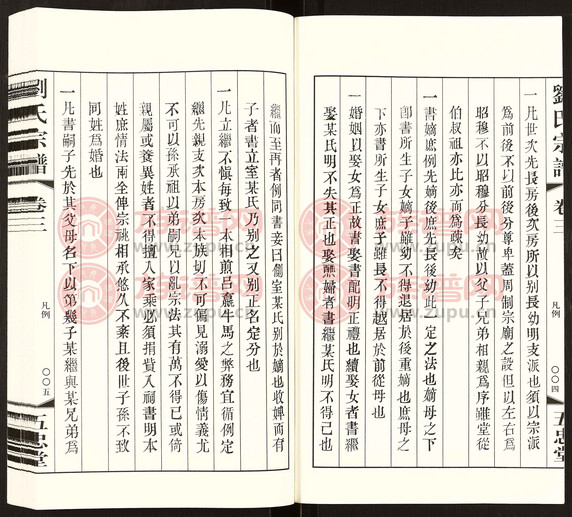 劉氏宗譜
卷三
凡例
〇〇四
五忠堂
一凡世次先長房後次房所以別長幼明支派也須以宗派
為前後不以前後分尊卑蓋周制宗廟之設但以左右為
昭穆不以昭穆分長幼故以父子兄弟相親為序雖堂從
伯叔祖亦比亦而為疎矣
一書嫡庶例先嫡後庶先長後幼此一定之法也嫡母之下
卽書所生子女嫡子雖幼不得退居於後重嫡也庶母之
下亦書所生子女庶子雖長不得越居於前從母也
一婚姻以娶女為正故書娶書配明正禮也續娶女者書繼
娶某氏明不失其正也娶醮婦者書繼某氏明不得已也
繼而至再者例同書妾曰側室某氏別於嫡也收婢而有
子者書立室某氏乃別之又別正名定分也
一凡立繼不慎每致一本相前呂嬴牛馬之弊務宜循例定
繼先親支次本房次本族切不可偏見溺愛以傷情義尤
不可以孫承祖以弟嗣兄以亂宗法其有萬不得已或倚
親屬或養異姓者不得擅入家乘必須捐貲入祠書明本
姓庶情法兩全俾宗祧相承悠久不棄且後世子孫不致
同姓為婚也
一凡書嗣子先於其父母名下以第幾子某繼與某兄弟為
劉氏宗譜
卷三
凡例
〇〇五
五忠堂